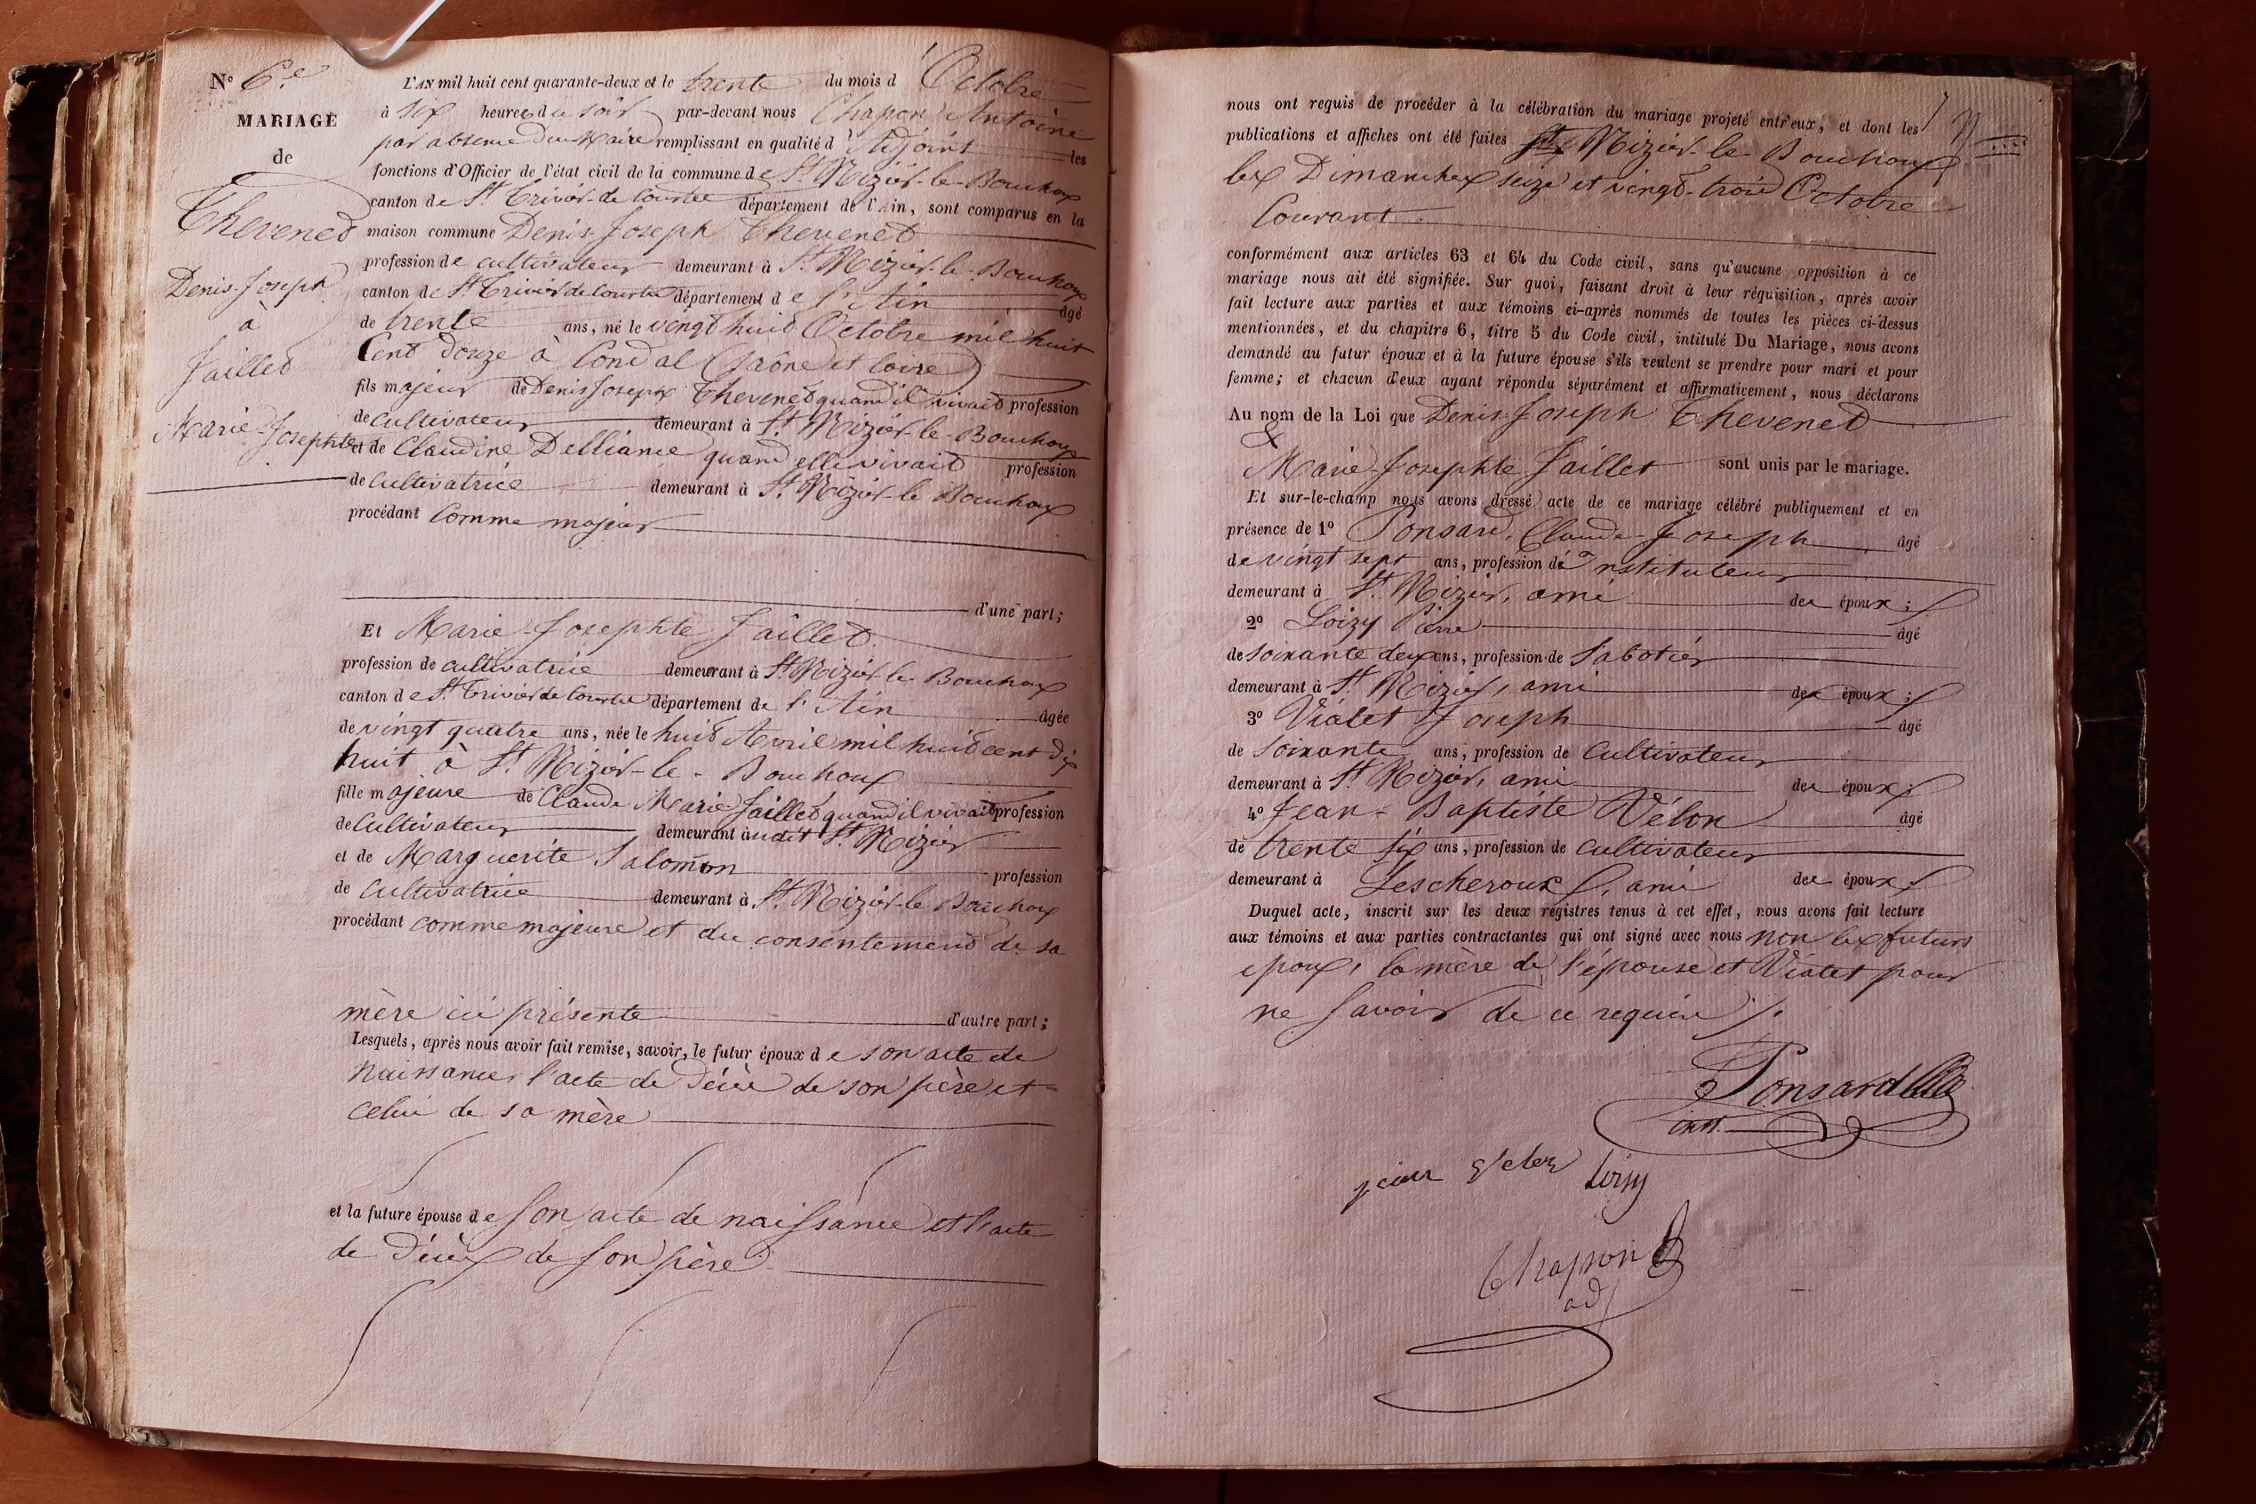 N° 6e
MARIAGE
de
Thevenet
Denis-Joseph
à
Jaillet
Marie-Josephte
L'AN mil huit cent quarante-deux et le trente du mois d'Octobre
à six heures du soir par-devant nous Chapon Antoine
par absence du Maire remplissant en qualité d'Adjoint les
fonctions d'Officier de l'état civil de la commune de St Nizier-le-Bouchoux
canton de St Trivier-de-Courtes département de l'Ain, sont comparus en la
maison commune Denis-Joseph Thevenet
profession de cultivateur demeurant à St Nizier-le-Bouchoux
canton de St Trivier de Courtes département de l'Ain âgé
de trente ans, né le vingt huit Octobre mil huit
Cent douze à Condal (Saône et Loire)
fils majeur de Denis Joseph Thevenet quand il vivait profession
de cultivateur demeurant à St Nizier-le-Bouchoux
et de Claudine Delliance quand elle vivait profession
de cultivatrice demeurant à St Nizier-le Bouchoux
procédant Comme majeur
d'une part;
Et Marie-Josephte Jaillet
profession de cultivatrice demeurant à St Nizier-le-Bouchoux
canton de St Trivier de Courtes département de l'Ain âgée
de vingt quatre ans, née le huit Avril mil huit cent dix
huit à St Nizier-le-Bouchoux
fille majeure de Claude Marie Jaillet quand il vivait profession
de Cultivateur demeurant audit St Nizier
et de Marguerite Salomon profession
de cultivatrice demeurant à St Nizier-le Bouchoux
procédant comme majeure et du consentement de sa
mère ici présente d'autre part;
Lesquels, après nous avoir fait remise, savoir, le futur époux de son acte de
naissance, l'acte de décès de son père et
celui de sa mère
et la future épouse de son acte de naissance et l'acte
de décès de son père
nous ont requis de procéder à la célébration du mariage projeté entr'eux, et dont les
publications et affiches ont été faites St Nizier-le-Bouchoux
les Dimanches seize et vingt-trois Octobre
Courant
conformément aux articles 63 et 64 du Code civil, sans qu'aucune opposition à ce
mariage nous ait été signifiée. Sur quoi, faisant droit à leur réquisition, après avoir
fait lecture aux parties et aux témoins ci-après nommés de toutes les pièces ci-dessus
mentionnées, et du chapitre 6, titre 5 du Code civil, intitulé Du Mariage, nous avons
demandé au futur époux et à la future épouse s'ils veulent se prendre pour mari et pour
femme; et chacun d'eux ayant répondu séparément et affirmativement, nous déclarons
Au nom de la Loi que Denis-Joseph Thevenet
&
Marie-Josephte Jaillet sont unis par le mariage.
Et sur-le-champ nous avons dressé acte de ce mariage célébré publiquement et en
présence de 1° Ponsard, Claude-Joseph âgé
de vingt sept ans, profession d'instituteur
demeurant à St Nizier, ami des époux;
2° Loizy Pierre âgé
de soixante deux ans, profession de Sabotier
demeurant à St Nizier, ami des époux;
3° Vialet Joseph âgé
de soixante ans, profession de cultivateur
demeurant à St Nizier, ami des époux;
4° Jean-Baptiste Vélon âgé
de trente six ans, profession de cultivateur
demeurant à Lescheroux, ami des époux.
Duquel acte, inscrit sur les deux registres tenus à cet effet, nous avons fait lecture
aux témoins et aux parties contractantes qui ont signé avec nous non les futurs
époux, la mère de l'épouse et Vialet pour
ne savoir de ce requis /.
Ponsard
inst.
Loisy
Chapon
adj